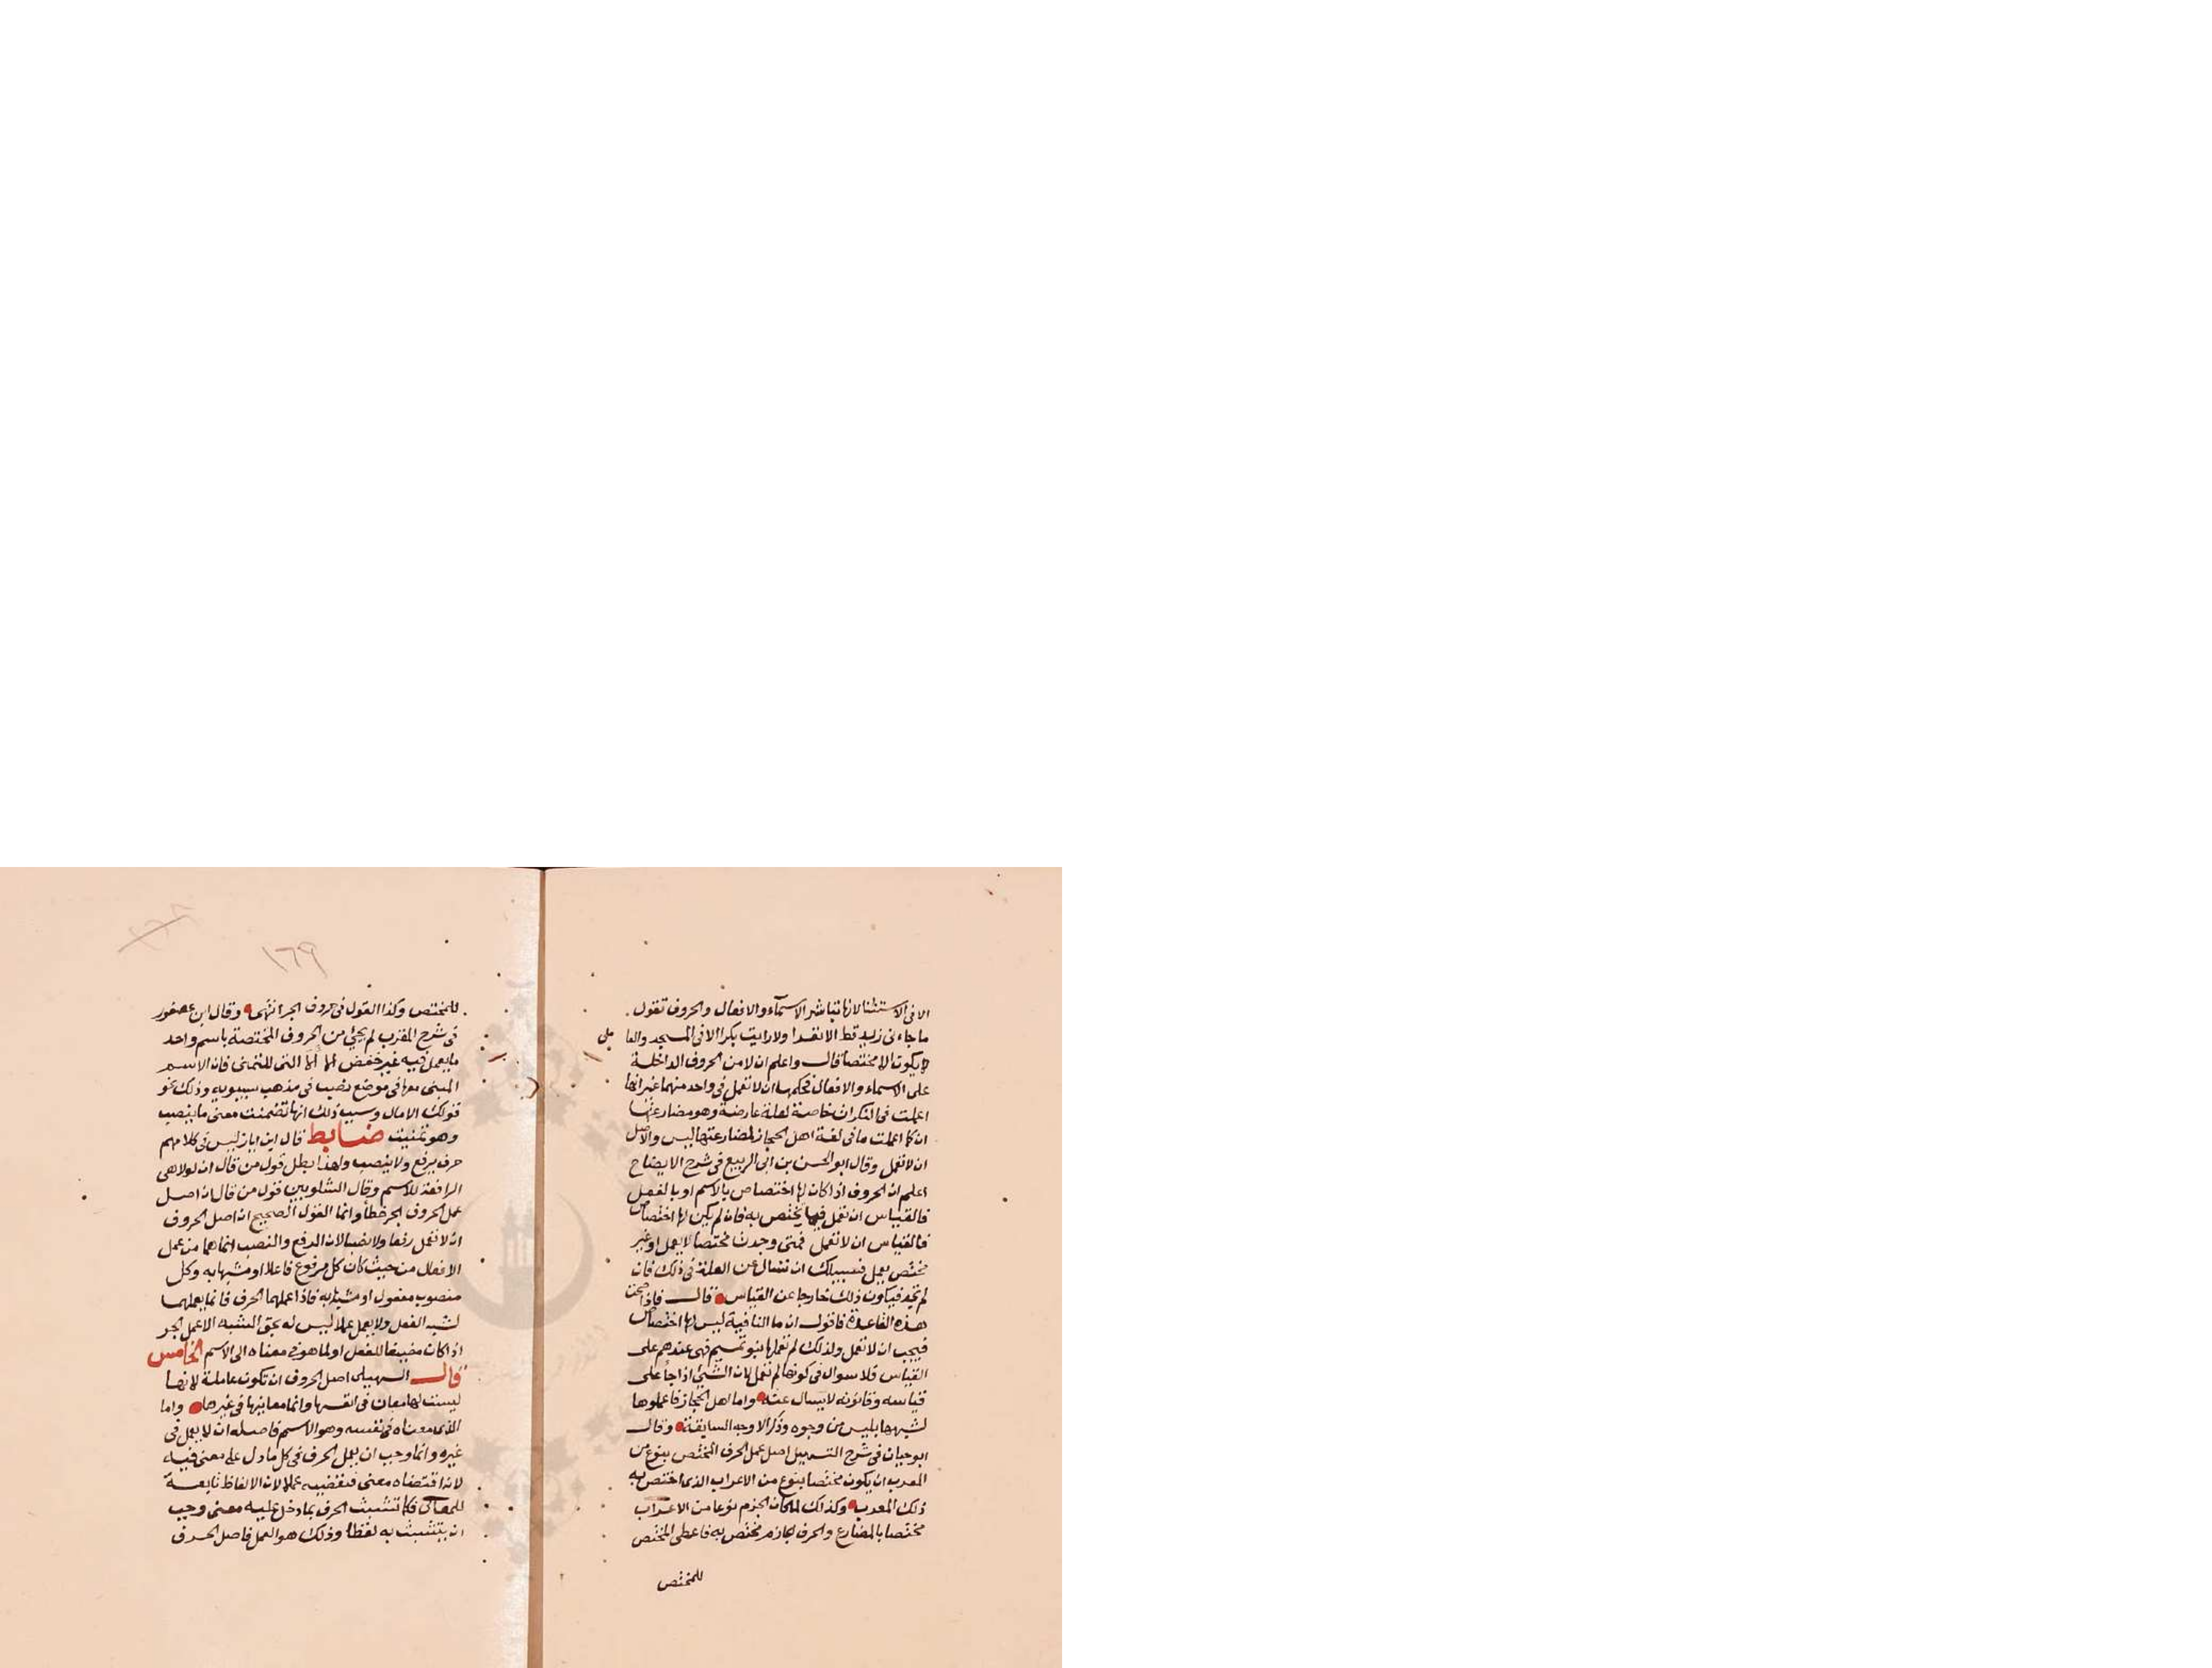 الا فى الاستثنا لانها تباشر الاسمآء والافعال والحروف تقول
ما جاءنى زيد قط الا نقدا ولا رايت بكرا الا فى المسجد والفا
لا يكون الا مختصا قال واعلم ان لا من الحروف الداخلة
على الاسماء والافعال فحكمها ان لا تعمل فى واحد منهما غير انها
اعملت فى النكرات خاصة لعلة عارضة وهو مضارعتها
ان كما اعملت ما فى لغة اهل الحجاز لمضارعتها ليس والاصل
ان لا تعمل وقال ابو الحسن بن ابى الربيع فى شرح الايضاح
اعلم ان الحروف اذا كان لها اختصاص بالاسم او بالفعل
فالقياس ان تعمل فيما يختص به فان لم يكن لها اختصاص
فالقياس ان لا تعمل فمتى وجدت مختصا لا يعمل او غير
مختص يعمل فسبيلك ان تسال عن العلة فى ذلك فان
لم تجد فيكون ذلك خارجا عن القياس قال فاذا صحت
هذه القاعدة فاقول ان ما النافية ليس لها اختصاص
فيجب ان لا تعمل ولذلك لم تعملها بنو تميم فهى عندهم على
القياس فلا سوال فى كونها لم تعمل لان الشئ اذا جا على
قياسه وقانونه لا يسال عنه واما اهل الحجاز فاعملوها
لشبهها بليس من وجوه وذكر الاوجه السابقة وقال
ابو حيان فى شرح التسهيل اصل عمل الحرف المختص بنوع من
المعرب ان يكون مختصا بنوع من الاعراب الذى اختص به
ذلك المعرب وكذلك لما كان الجزم نوعا من الاعراب
مختصا بالمضارع والحرف الجازم مختص به فاعطى المختص
للمختص
١٦٩
للمختص وكذا القول فى حروف الجر انتهى وقال ابن عصفور
فى شرح المقرب لم يجئ من الحروف المختصة باسم واحد
ما يعمل فيه غير خفض الا الا التى للتمنى فان الاسم
المبنى معها فى موضع نصب فى مذهب سيبويه وذلك نحو
قولك الا مال وسبب ذلك انها تضمنت معنى ما ينصب
وهو تمنيت ضابط قال ابن اياز ليس فى كلامهم
حرف يرفع ولا ينصب ولهذا بطل قول من قال ان لولا هى
الرافعة للاسم وقال الشلوبين قول من قال ان اصل
عمل الحروف الجر خطأ وانما القول الصحيح ان اصل الحروف
ان لا تعمل رفعا ولا نصبا لان الرفع والنصب انما هما من عمل
الافعال من حيث كان كل مرفوع فاعلا او مشبها به وكل
منصوب مفعول او مشبها به فاذا عملهما الحرف فانما يعملهما
لشبه الفعل ولا يعمل عملا ليس له بحق الشبه الا عمل الجر
اذا كان مضيفا للفعل او لما هو فى معناه الى الاسم الخامس
قال السهيلى اصل الحروف ان تكون عاملة لانها
ليست لها معان فى انفسها وانما معانيها فى غيرها واما
الذى معناه فى نفسه وهو الاسم فاصله ان لا يعمل فى
غيره وانما وجب ان يعمل الحرف فى كل ما دل على معنى فيه
لانه اقتضاه معنى فيقتضيه عملا لان الالفاظ تابعة
للمعانى فكما تشبث الحرف بما دخل عليه معنى وجب
ان يتشبث به لفظا وذلك هو العمل فاصل الحرف